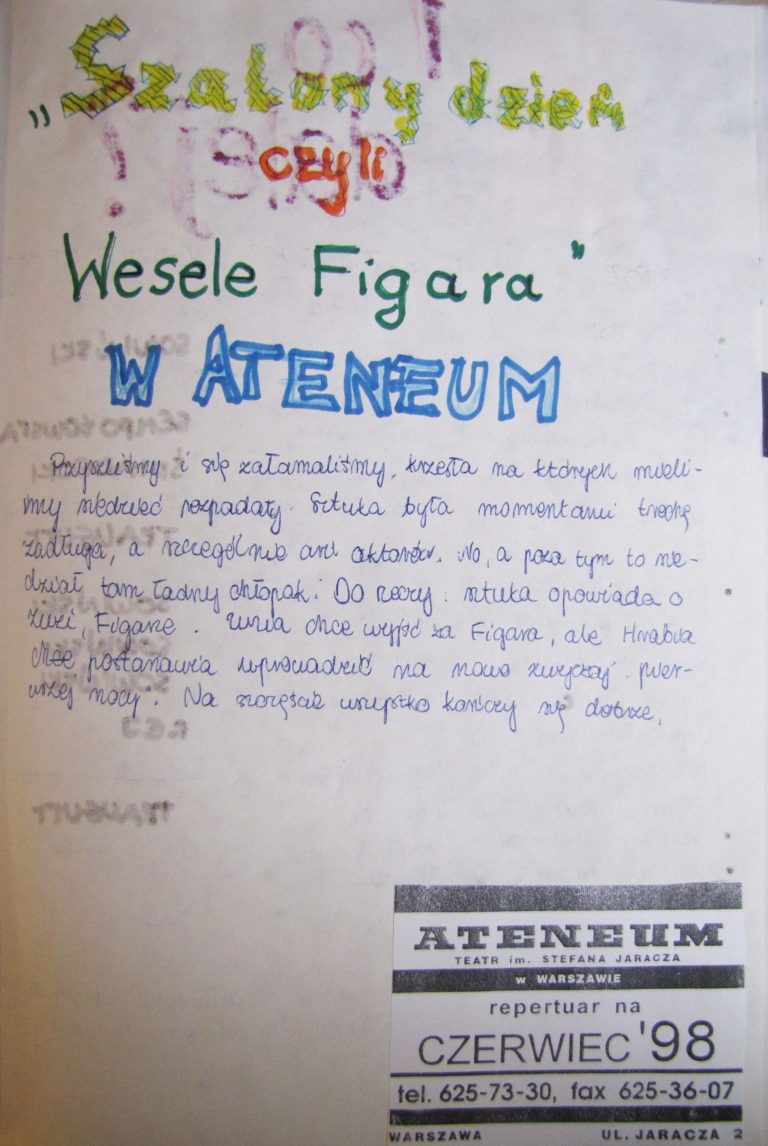 „Szalony dzień
czyli
Wesele Figara"
W ATENEUM
Przyszliśmy i się załamaliśmy, krzesła na których mieli-
śmy siedzieć rozpadały. Sztuka była momentami trochę
zadługa, a szczególnie aktorów. No, a poza tym to sie-
dział tam ładny chłopak. Do rzeczy: sztuka opowiada o
Figarze. chce wyjść za Figara, ale Hrabia
chce postanawia wprowadzić na nowo zwyczaj „pier-
wszej nocy". Na szczęście wszystko kończy się dobrze.
ATENEUM
TEATR im. STEFANA JARACZA
w WARSZAWIE
repertuar na
CZERWIEC '98
tel. 625-73-30, fax 625-36-07
WARSZAWA UL. JARACZA 2